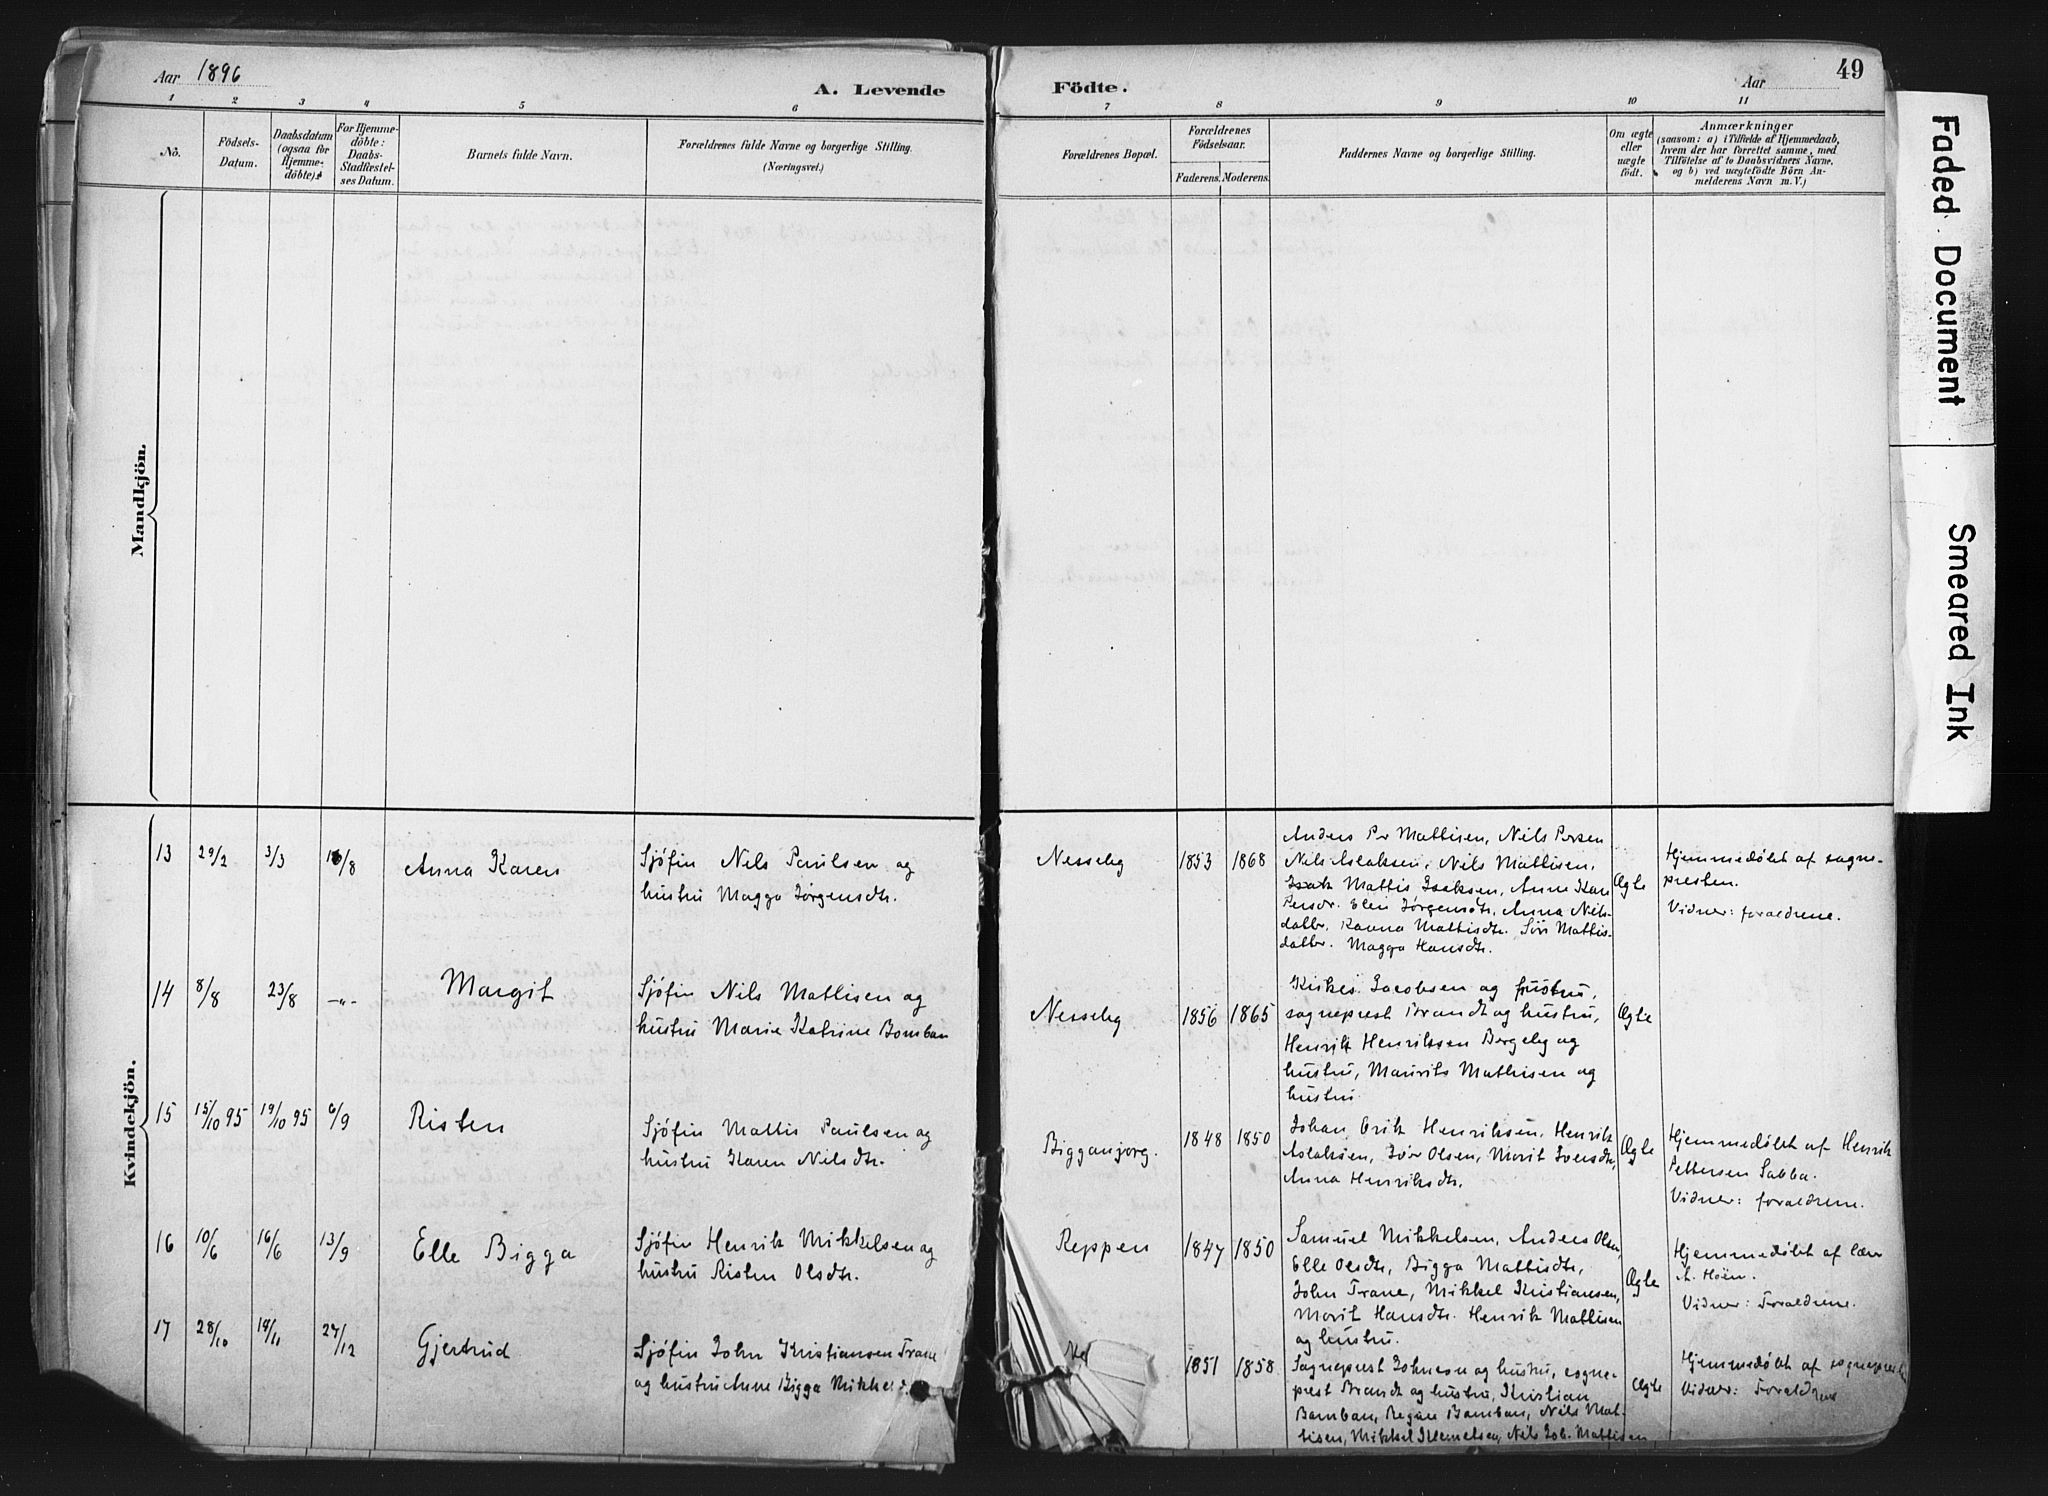 Aar 1896
A. Levende
Födte.
Aar
49
1 2 3 4 5 6 7 8 9 10 11
No.
Födsels-
Datum.
Daabsdatum
(ogsaa for
Hjemme-
döbte).
For Hjemme-
döbte:
Daabs-
Stadfæstel-
ses Datum.
Barnets fulde Navn.
Forældrenes fulde Navne og borgerlige Stilling.
(Næringsvei.)
Forældrenes Bopæl.
Forældrenes
Födselsaar.
Faderens. Moderens.
Faddernes Navne og borgerlige Stilling.
Om ægte
eller
uægte
födt.
Anmærkninger
(saasom: a) i Tilfælde af Hjemmedaab,
hvem der har forrettet samme, med
Tilföielse af to Daabsvidners Navne.
og b) ved uægtefödte Börn An-
melderens Navn m. V.)
Mandkjön.
Kvindekjön.
13 29/2 3/3 16/8
Anna Karen
Sjøfin Nils Paulsen og
hustru Magga Jørgensdtr.
Nesseby
1853 1868
Anders Pr Mathisen, Nils Persen
Nils Aslaksen, Nils Mathisen,
Isak Mattis Isaksen, Anne Kari
Persdr. Elen Jørgensdtr, Anna Nils-
datter. Ravna Mattisdtr. Siri Mattis-
datter. Magga Hansdtr.
Ægte
Hjemmedøbt af sogne-
presten.
Vidner: foraeldrene.
14 8/8 23/8 -"-
Margit
Sjøfin Nils Mathisen og
hustru Marie Katrine Bomban
Nesseby
1856 1865
Jacobsen og hustru,
sogneprest Brandt og hustru,
Henrik Henriksen Bergeby og
hustru, Maurits Mathisen og
hustru
Ægte
15 15/10 95 19/10 95 6/9
Risten
Sjøfin Mattis Paulsen og
hustru Karen Nilsdtr.
Bigganjarg.
1848 1850
Johan Erik Henriksen, Henrik
Aslaksen, Ivor Olsen, Marit Iversdtr,
Anna Henriksdtr.
Ægte
Hjemmedøbt af Henrik
Pettersen Sabba.
Vidner: foraeldrene.
16 10/6 16/6 13/9
Elle Bigga
Sjøfin Henrik Mikkelsen og
hustru Risten Olsdtr.
Reppen
1847 1850
Samuel Mikkelsen, Anders Olsen,
Elle Olsdtr, Bigga Mattisdtr,
John Trane, Mikkel Kristiansen,
Marit Hansdtr. Henrik Mathisen
og hustru.
Ægte
Hjemmedøbt af lær
A. Hoën.
Vidner: Foraeldrene.
17 28/10 14/11 27/12
Gjertrud
Sjøfin John Kristiansen Trane
og hustru Anne Bigga Mikkelsd.
Nes
1851 1858
Sogneprest Johnson og hustru, sogne-
prest Brandt og hustru, Kristian
Bamban, Regine Bamban, Nils Mat-
hisen, Mikkel Klemetsen, Nils Joh. Mathisen
Ægte
Hjemmedøbt af sogneprest
Vidner: Foraeldrene
Faded Document
Smeared Ink